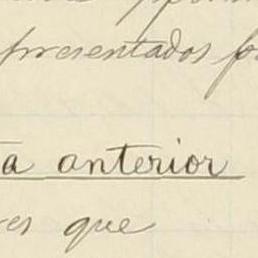 presentados fo
ta anterior
res que